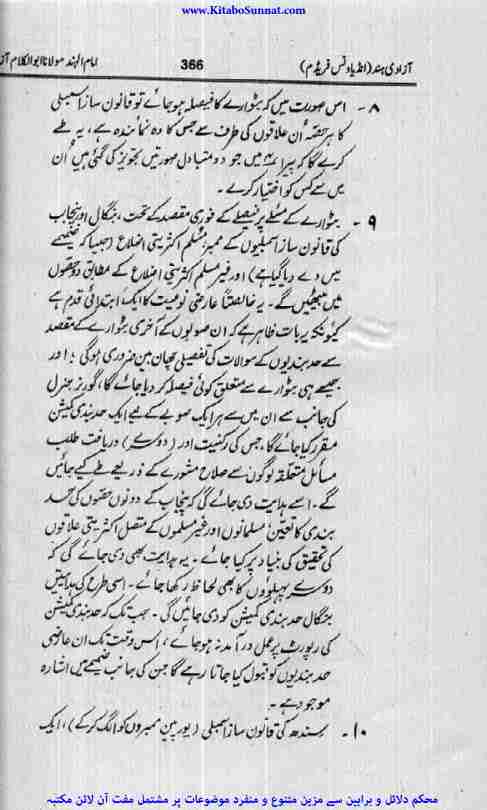 www.KitaboSunnat.com
آزادی ہند (انڈیا ونس فریڈم) 366 امام الہند مولانا ابوالکلام آز
۸ - اس صورت میں کہ بٹوارے کا فیصلہ ہو جائے تو قانون ساز اسمبلی
کا ہر حصّہ اُن علاقوں کی طرف سے جس کا وہ نمائندہ ہے، یہ طے
کرے گا کہ پیرا میں جو دو متبادل صورتیں تجویز کی گئی ہیں اُن
میں سے کس کو اختیار کرے۔
۹ - بٹوارے کے مسئلے پر فیصلے کے فوری مقصد کے تحت، بنگال اور پنجاب
کی قانون ساز اسمبلیوں کے ممبر، مُسلم اکثریتی اضلاع (جیسا کہ ضمیمے
میں دے دیا گیا ہے) اور غیر مسلم اکثریتی اضلاع کے مطابق دو حصّوں
میں بیٹھیں گے۔ یہ خالصتاً عارضی نوعیت کا ایک ابتدائی قدم ہے
کیونکہ یہ بات ظاہر ہے کہ ان صوبوں کے آخری بٹوارے کے مقصد
سے حد بندیوں کے سوالات کی تفصیلی چھان بین ضروری ہوگی؛ اور
جیسے ہی بٹوارے سے متعلق کوئی فیصلہ کر دیا جائے گا، گورنر جنرل
کی جانب سے ان میں سے ہر ایک صوبے کے لیے ایک حد بندی کمیشن
مقرر کیا جائے گا، جس کی رکنیت اور (دوسرے) دریافت طلب
مسائل متعلقہ لوگوں سے صلاح مشورے کے ذریعے طے کیے جائیں
گے۔ اسے ہدایت دی جائے گی کہ پنجاب کے دونوں حصّوں کی حد
بندی کا تعین، مسلمانوں اور غیر مسلموں کے متصل اکثریتی علاقوں
کی تحقیق کی بنیاد پر کیا جائے۔ یہ ہدایت بھی دی جائے گی کہ
دوسرے پہلوؤں کا بھی لحاظ رکھا جائے۔ اسی طرح کی ہدایتیں
بنگال حد بندی کمیشن کو دی جائیں گی۔ جب تک کہ حد بندی کمیشن
کی رپورٹ پر عمل درآمد نہ ہو جائے، اُس وقت تک ان عارضی
حد بندیوں کو قبول کیا جاتا رہے گا جن کی جانب ضمیمے میں اشارہ
موجود ہے۔
۱۰ - سندھ کی قانون ساز اسمبلی (یورپین ممبروں کو الگ کر کے)، ایک
محکم دلائل و براہین سے مزین متنوع و منفرد موضوعات پر مشتمل مفت آن لائن مکتبہ